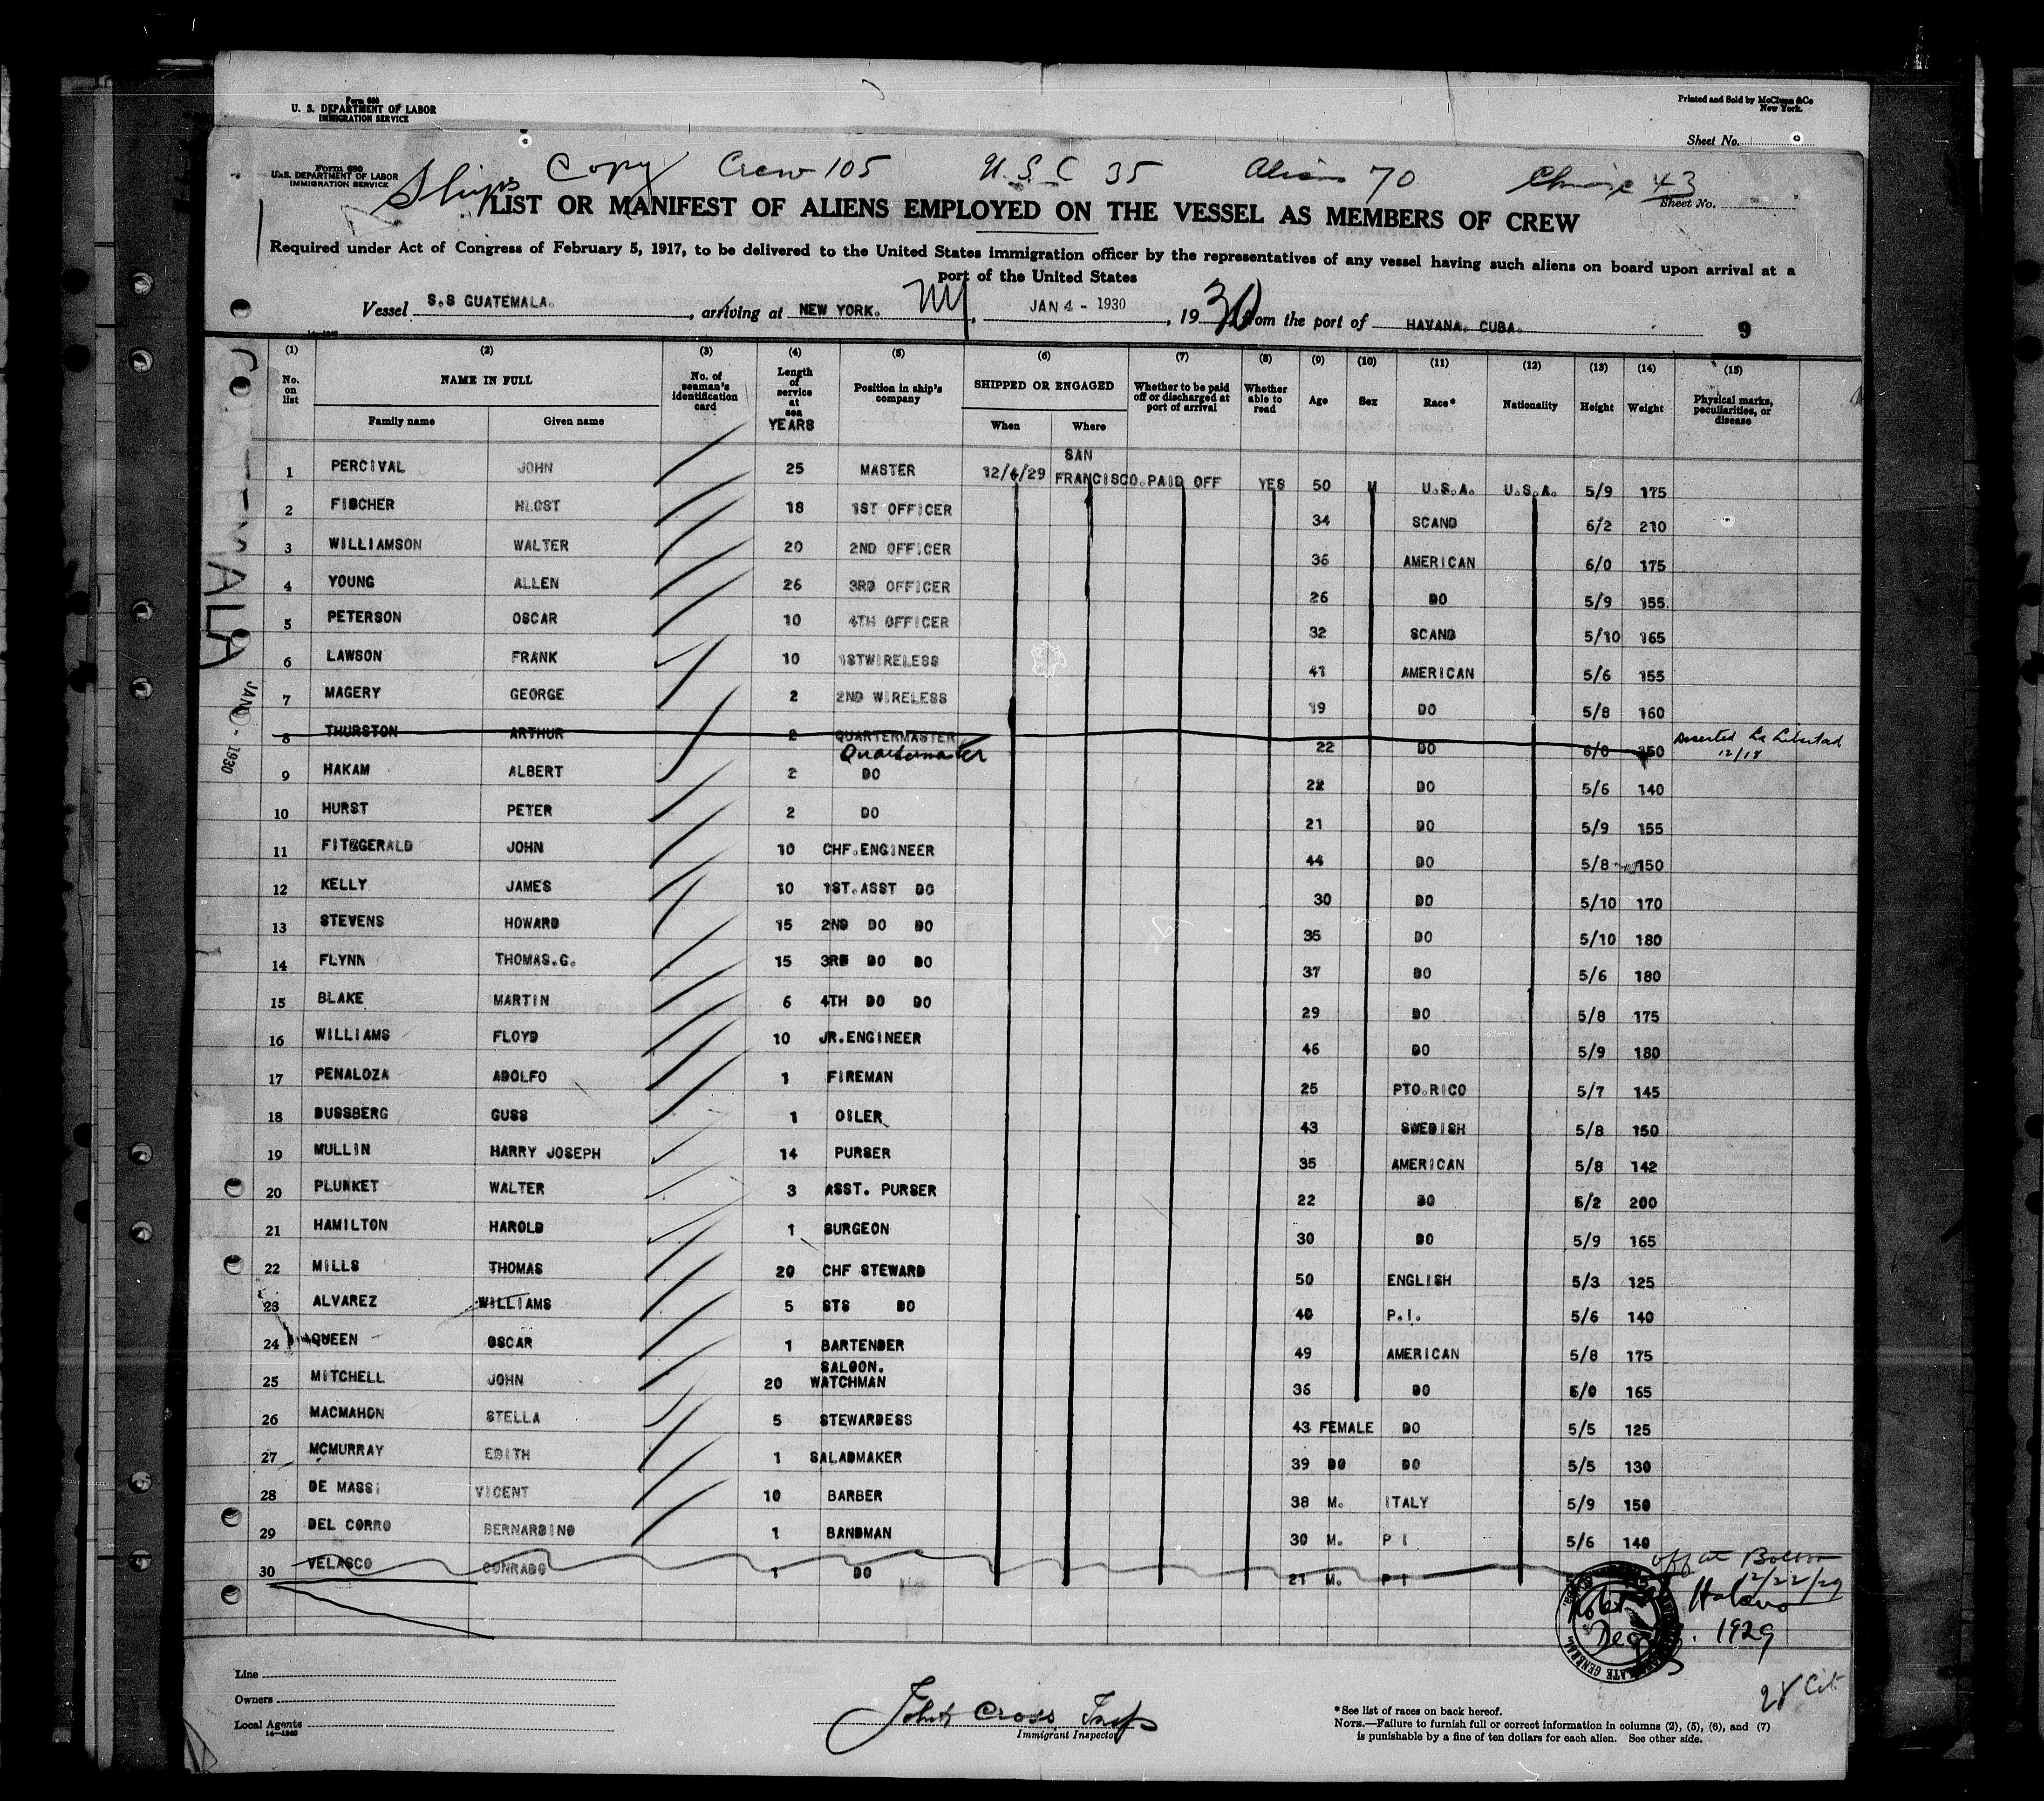 Form 680
U. S. DEPARTMENT OF LABOR
IMMIGRATION SERVICE
Printed and Sold by
New York.
Sheet No.
Form 680
U.S. DEPARTMENT OF LABOR
IMMIGRATION SERVICE
Ships Copy Crew 105 U.S.C 35 Alien 70 Chinese 43
Sheet No.
LIST OR MANIFEST OF ALIENS EMPLOYED ON THE VESSEL AS MEMBERS OF CREW
Required under Act of Congress of February 5, 1917, to be delivered to the United States immigration officer by the representatives of any vessel having such aliens on board upon arrival at a
port of the United States
Vessel S.S GUATEMALA. , arriving at NEW YORK. NY , JAN 4 - 1930 , 1930 from the port of HAVANA. CUBA. 9
GUATEMALA
JAN - 1930
(1) (2) (3) (4) (5) (6) (7) (8) (9) (10) (11) (12) (13) (14) (15)
No. on list NAME IN FULL Family name Given name No. of seaman's identification card Length of service at sea YEARS Position in ship's company SHIPPED OR ENGAGED When Where Whether to be paid off or discharged at port of arrival Whether able to read Age Sex Race* Nationality Height Weight Physical marks, peculiarities, or disease
1 PERCIVAL JOHN 25 MASTER 12/4/29 SAN FRANCISCO. PAID OFF YES 50 M U.S.A. U.S.A. 5/9 175
2 FISCHER HLOST 18 1ST OFFICER 34 SCAND 6/2 210
3 WILLIAMSON WALTER 20 2ND OFFICER 36 AMERICAN 6/0 175
4 YOUNG ALLEN 26 3RD OFFICER 26 DO 5/9 155
5 PETERSON OSCAR 10 4TH OFFICER 32 SCAND 5/10 165
6 LAWSON FRANK 10 1STWIRELESS 41 AMERICAN 5/6 155
7 MAGERY GEORGE 2 2ND WIRELESS 19 DO 5/8 160
8 THURSTON ARTHUR 2 QUARTERMASTER 22 DO 6/0 150 Deserted La Libertad 12/18
Quartermaster
9 HAKAM ALBERT 2 DO 22 DO 5/6 140
10 HURST PETER 2 DO 21 DO 5/9 155
11 FITZGERALD JOHN 10 CHF.ENGINEER 44 DO 5/8 150
12 KELLY JAMES 10 1ST.ASST DO 30 DO 5/10 170
13 STEVENS HOWARD 15 2ND DO DO 35 DO 5/10 180
14 FLYNN THOMAS.G. 15 3RD DO DO 37 DO 5/6 180
15 BLAKE MARTIN 6 4TH DO DO 29 DO 5/8 175
16 WILLIAMS FLOYD 10 JR.ENGINEER 46 DO 5/9 180
17 PENALOZA ADOLFO 1 FIREMAN 25 PTO.RICO 5/7 145
18 DUSSBERG GUSS 1 OILER 43 SWEDISH 5/8 150
19 MULLIN HARRY JOSEPH 14 PURSER 35 AMERICAN 5/8 142
20 PLUNKET WALTER 3 ASST. PURSER 22 DO 6/2 200
21 HAMILTON HAROLD 1 SURGEON 30 DO 5/9 165
22 MILLS THOMAS 20 CHF STEWARD 50 ENGLISH 5/3 125
23 ALVAREZ WILLIAMS 5 STS DO 40 P.I. 5/6 140
24 QUEEN OSCAR 1 BARTENDER 49 AMERICAN 5/8 175
25 MITCHELL JOHN 20 SALOON. WATCHMAN 36 DO 6/0 165
26 MACMAHON STELLA 5 STEWARDESS 43 FEMALE DO 5/5 125
27 MCMURRAY EDITH 1 SALADMAKER 39 DO DO 5/5 130
28 DE MASSI VICENT 10 BARBER 38 M. ITALY 5/9 150
29 DEL CORRO BERNARDINO 1 BANDMAN 30 M. P I 5/6 140
30 VELASCO CONRADO 1 DO 21 M. P I
off at Balboa 12/22/29
Habana
Dec 1929
28 Cit
Line
Owners
Local Agents
14—1240
John Cross Insp
Immigrant Inspector
*See list of races on back hereof.
NOTE.—Failure to furnish full or correct information in columns (2), (5), (6), and (7)
is punishable by a fine of ten dollars for each alien. See other side.